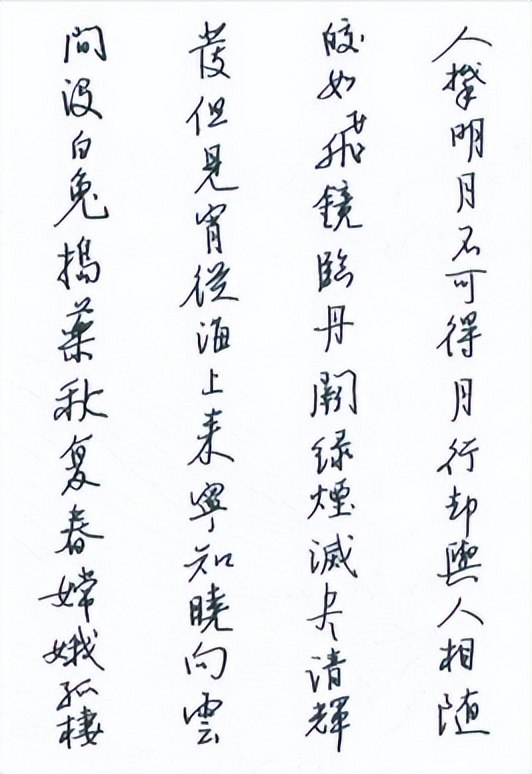 人攀明月不可得月行却與人相随
皎如飛鏡臨丹闕緑煙滅尽清輝
發但見宵從海上来寧知曉向雲
間没白兔搗藥秋复春嫦娥孤棲